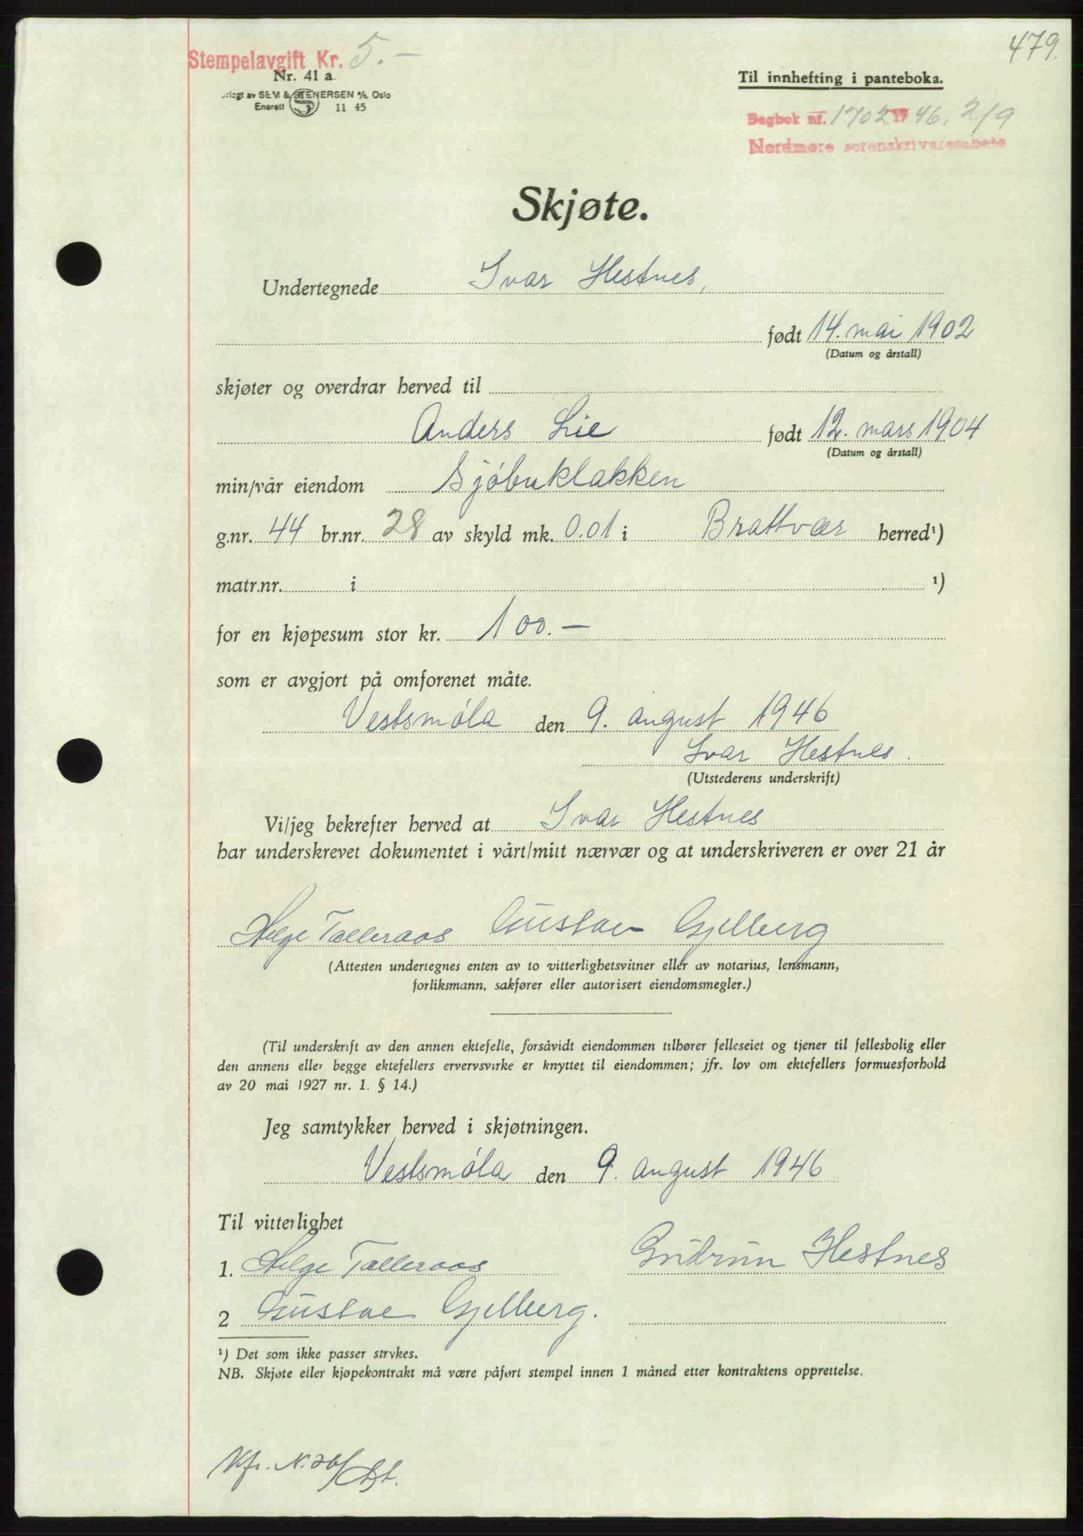 479.
Stempelavgift Kr. 5.-
Nr. 41 a.
Forlagt av SEM & STENERSEN A/S, Oslo
Enerett 11 45
Til innhefting i panteboka.
Dagbok nr. 1702 1946, 2/9
Nordmøre sorenskriverembete
Skjøte.
Undertegnede Ivar Hestnes,
født 14. mai 1902
(Datum og årstall)
skjøter og overdrar herved til
Anders Lie født 12. mars 1904
(Datum og årstall)
min/vår eiendom Sjöbuklakken
g.nr. 44 br.nr. 28 av skyld mk. 0.01 i Brattvær herred¹)
matr.nr. i ¹)
for en kjøpesum stor kr. 100.-
som er avgjort på omforenet måte.
Vestsmöla den 9. august 1946
Ivar Hestnes.
(Utstederens underskrift)
Vi/jeg bekrefter herved at Ivar Hestnes
har underskrevet dokumentet i vårt/mitt nærvær og at underskriveren er over 21 år
Helge Talleraas Gustav Gjelberg
(Attesten undertegnes enten av to vitterlighetsvitner eller av notarius, lensmann,
forliksmann, sakfører eller autorisert eiendomsmegler.)
(Til underskrift av den annen ektefelle, forsåvidt eiendommen tilhører felleseiet og tjener til fellesbolig eller
den annens eller begge ektefellers ervervsvirke er knyttet til eiendommen; jfr. lov om ektefellers formuesforhold
av 20 mai 1927 nr. 1. § 14.)
Jeg samtykker herved i skjøtningen.
Vestsmöla den 9. august 1946
Til vitterlighet
1. Helge Talleraas Gudrun Hestnes
2 Gustav Gjelberg.
¹) Det som ikke passer strykes.
NB. Skjøte eller kjøpekontrakt må være påført stempel innen 1 måned etter kontraktens opprettelse.